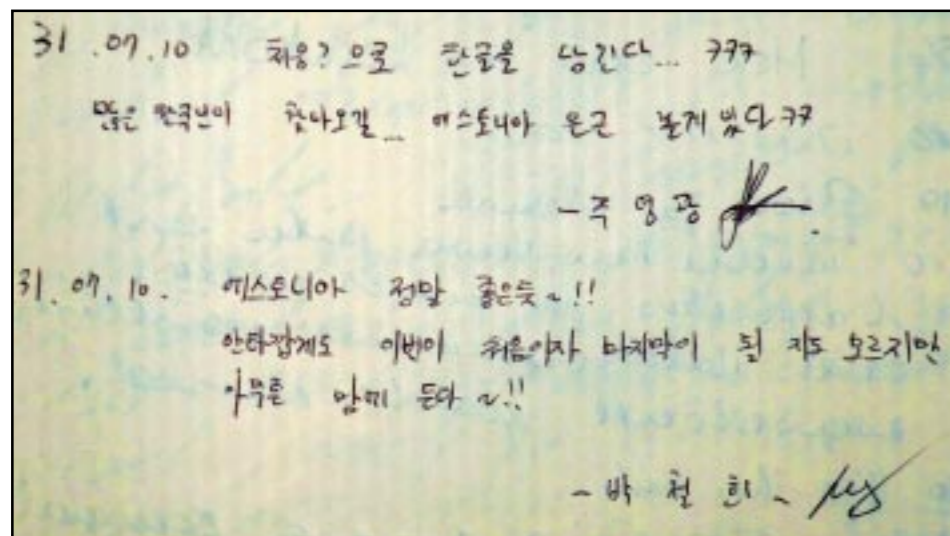 31.07.10 처음?으로 한글을 남긴다... ㅋㅋㅋ
많은 한국분이 찾아오길... 에스토니아 은근 볼게 많다 ㅋㅋ
- 주영광
31.07.10. 에스토니아 정말 좋은듯~!!
안타깝게도 이번이 처음이자 마지막이 될 지도 모르지만
아무튼 맘에 든다~!!
- 박철희 -